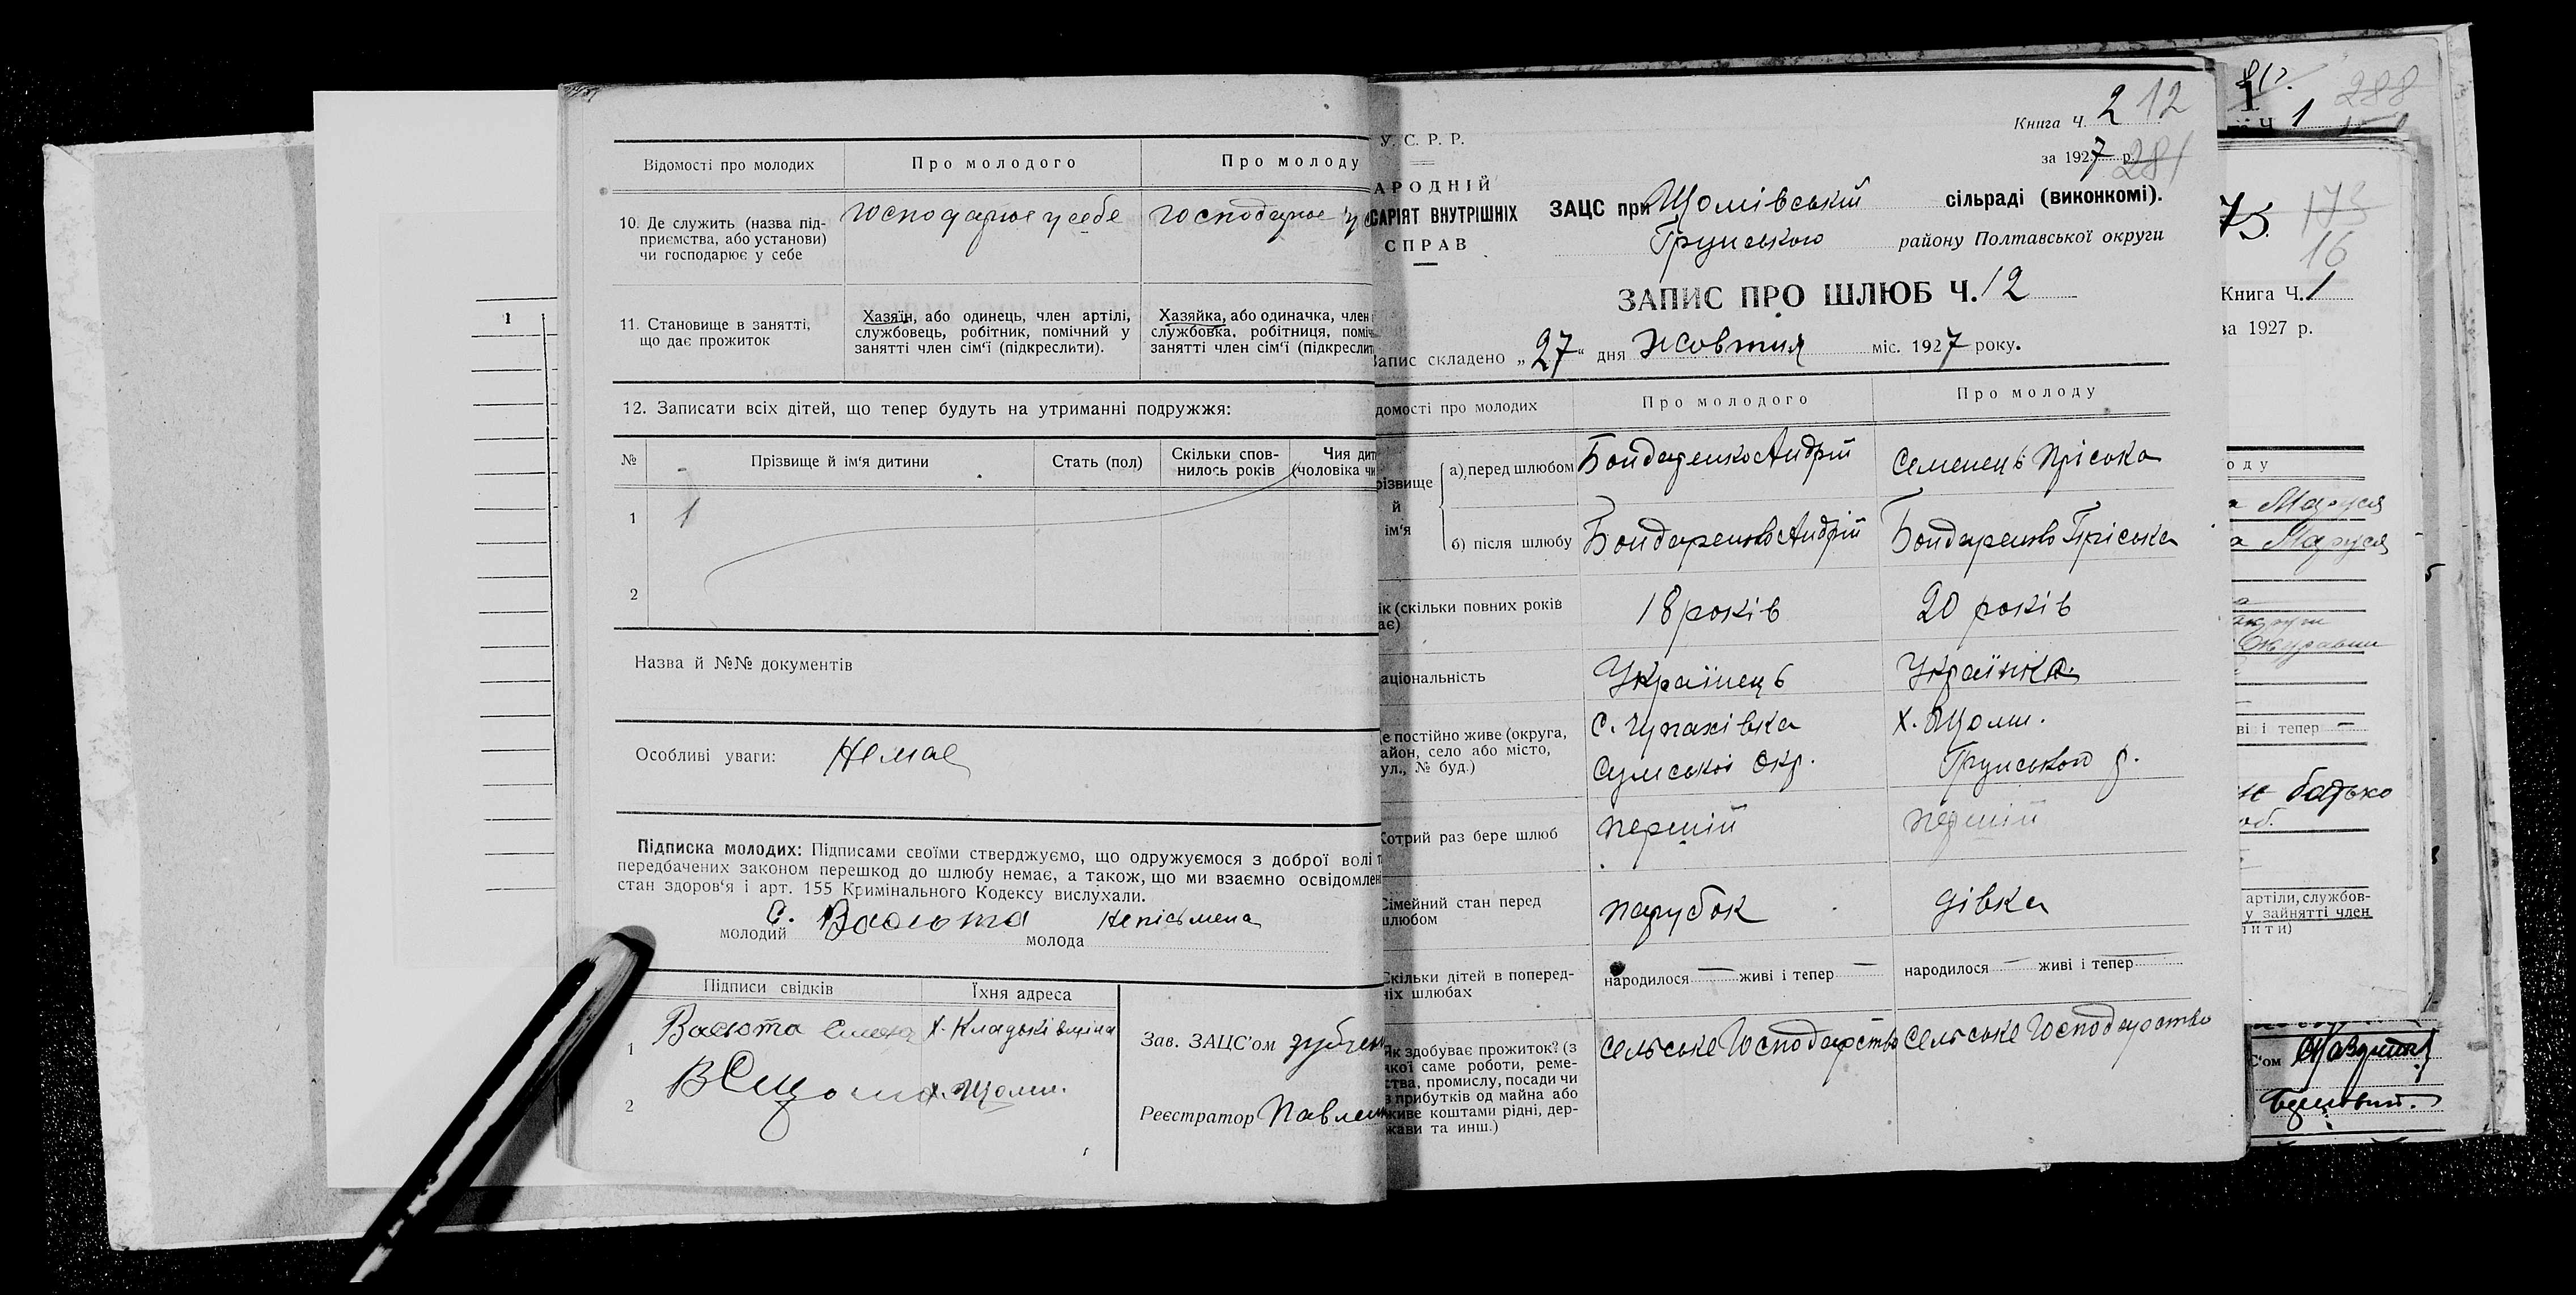 Відомості про молодих
Про молодого
Про молоду
10. Де служить (назва під-
приємства, або установи)
чи господарює у себе
господарює у себе
господарює у
11. Становище в занятті,
що дає прожиток
Хазяїн, або одинець, член артілі,
службовець, робітник, помічний у
занятті член сім'ї (підкреслити).
Хазяйка, або одиначка, член
службовка, робітниця, поміч
занятті член сім'ї (підкреслит
12. Записати всіх дітей, що тепер будуть на утриманні подружжя:
№
Прізвище й ім'я дитини
Стать (пол)
Скільки спов-
нилось років
Чия дит
(чоловіка чи
1
2
Назва й №№ документів
Особливі уваги: Немає
Підписка молодих: Підписами своїми стверджуємо, що одружуємося з доброї волі
передбачених законом перешкод до шлюбу немає, а також, що ми взаємно освідомлені
стан здоров'я і арт. 155 Кримінального Кодексу вислухали.
молодий С. Васюта молода неписьмена
Підписи свідків
Їхня адреса
1 Васюта
2
х. Щоми.
Зав. ЗАЦС'ом
Реєстратор
У. С. Р. Р.
АРОДНІЙ
САРІЯТ ВНУТРІШНІХ
СПРАВ
Книга Ч. 2 12
за 1927 р. 281
ЗАЦС при Щомівській сільраді (виконкомі).
Грунського району Полтавської округи
ЗАПИС ПРО ШЛЮБ Ч. 12
Запис складено „27" дня Жовтня міс. 1927 року.
домості про молодих
Про молодого
Про молоду
різвище
й
ім'я
а) перед шлюбом
Бондаренко Андрій
Семенець Пріська
б) після шлюбу
Бондаренко Андрій
Бондаренко Пріська
ік (скільки повних років
ає)
18 років
20 років
аціональність
Українець
Українка
е постійно живе (округа,
айон, село або місто,
ул., № буд.)
с. Чупахівка
Сумської окр.
х. Щоми.
Грунського р.
Котрий раз бере шлюб
перший
перший
Сімейний стан перед
шлюбом
парубок
дівка
Скільки дітей в поперед-
ніх шлюбах
народилося — живі і тепер —
народилося — живі і тепер —
Як здобуває прожиток? (з
якої саме роботи, реме-
ства, промислу, посади чи
з прибутків од майна або
живе коштами рідні, дер-
жави та инш.)
сельське Господарство
сельське Господарство
288
Ч 1
75. 173
16
Книга Ч. 1
за 1927 р.
оду
а Маруся
а Маруся
ві і тепер —
батько
артіли, службов-
у зайнятті член
ити)
С'ом